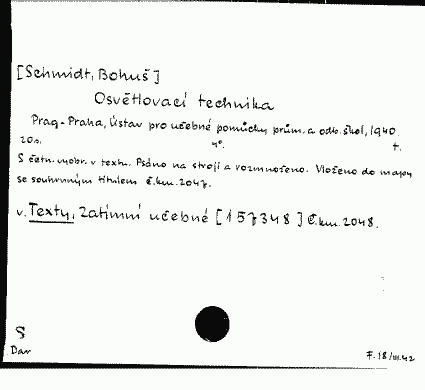 [Schmidt, Bohuš]
Osvětlovací technika
Prag-Praha, Ústav pro učebné pomůcky prům. a odb. škol, 1940.
20 s. 4°. †.
S četn. vyobr. v textu. Psáno na stroji a rozmnoženo. Vloženo do mapy
se souhrnným titulem Č.kn. 2047.
v. Texty, Zatímní učebné [157348] Č.kn. 2048.
S
Dar
F. 18/III.42